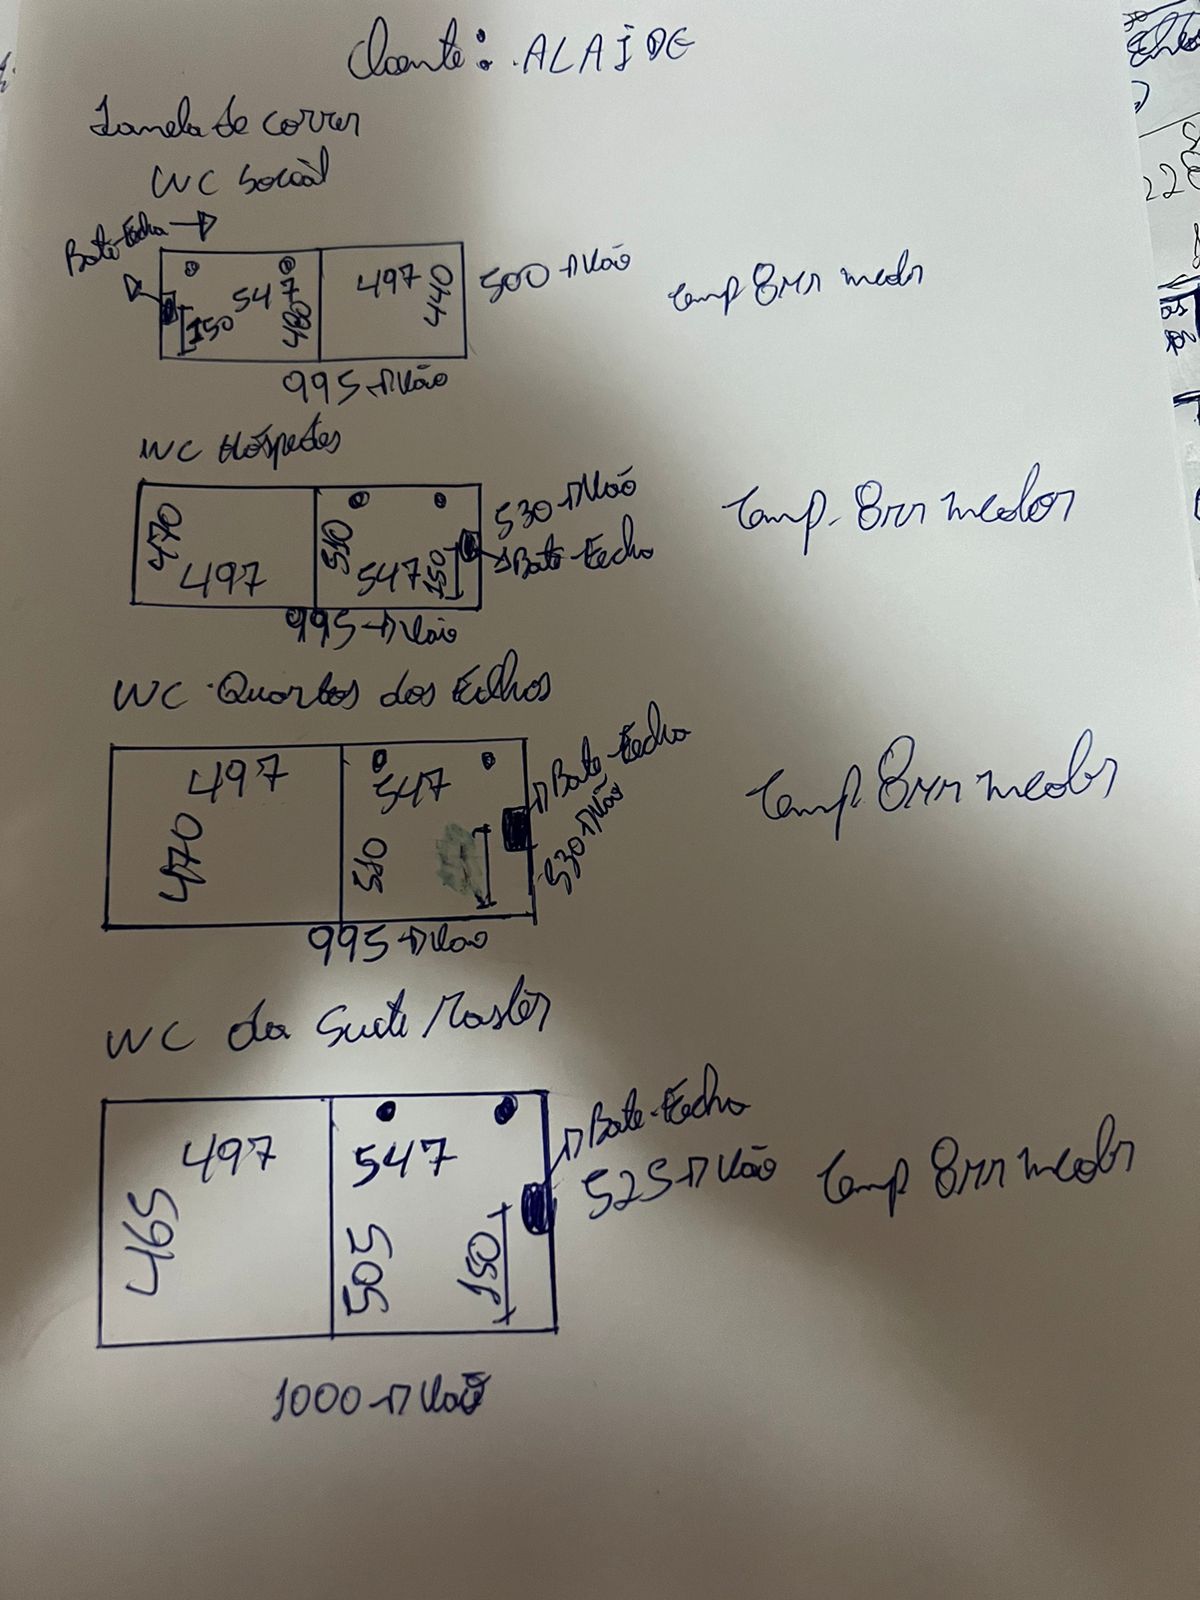 Cliente: ALAIDE
Janela de correr
WC Social
Bate-Fecha
547
497
150
480
440
500 Vão
Temp 8mm incolor
995 Vão
WC Hóspedes
470
497
510
547
150
530 Vão
Bate-Fecha
Temp. 8mm incolor
995 Vão
WC Quartos dos Filhos
497
470
547
510
Bate-Fecha
530 Vão
Temp 8mm incolor
995 Vão
WC da Suite Master
497
465
547
505
150
Bate-Fecha
525 Vão
Temp 8mm incolor
1000 Vão